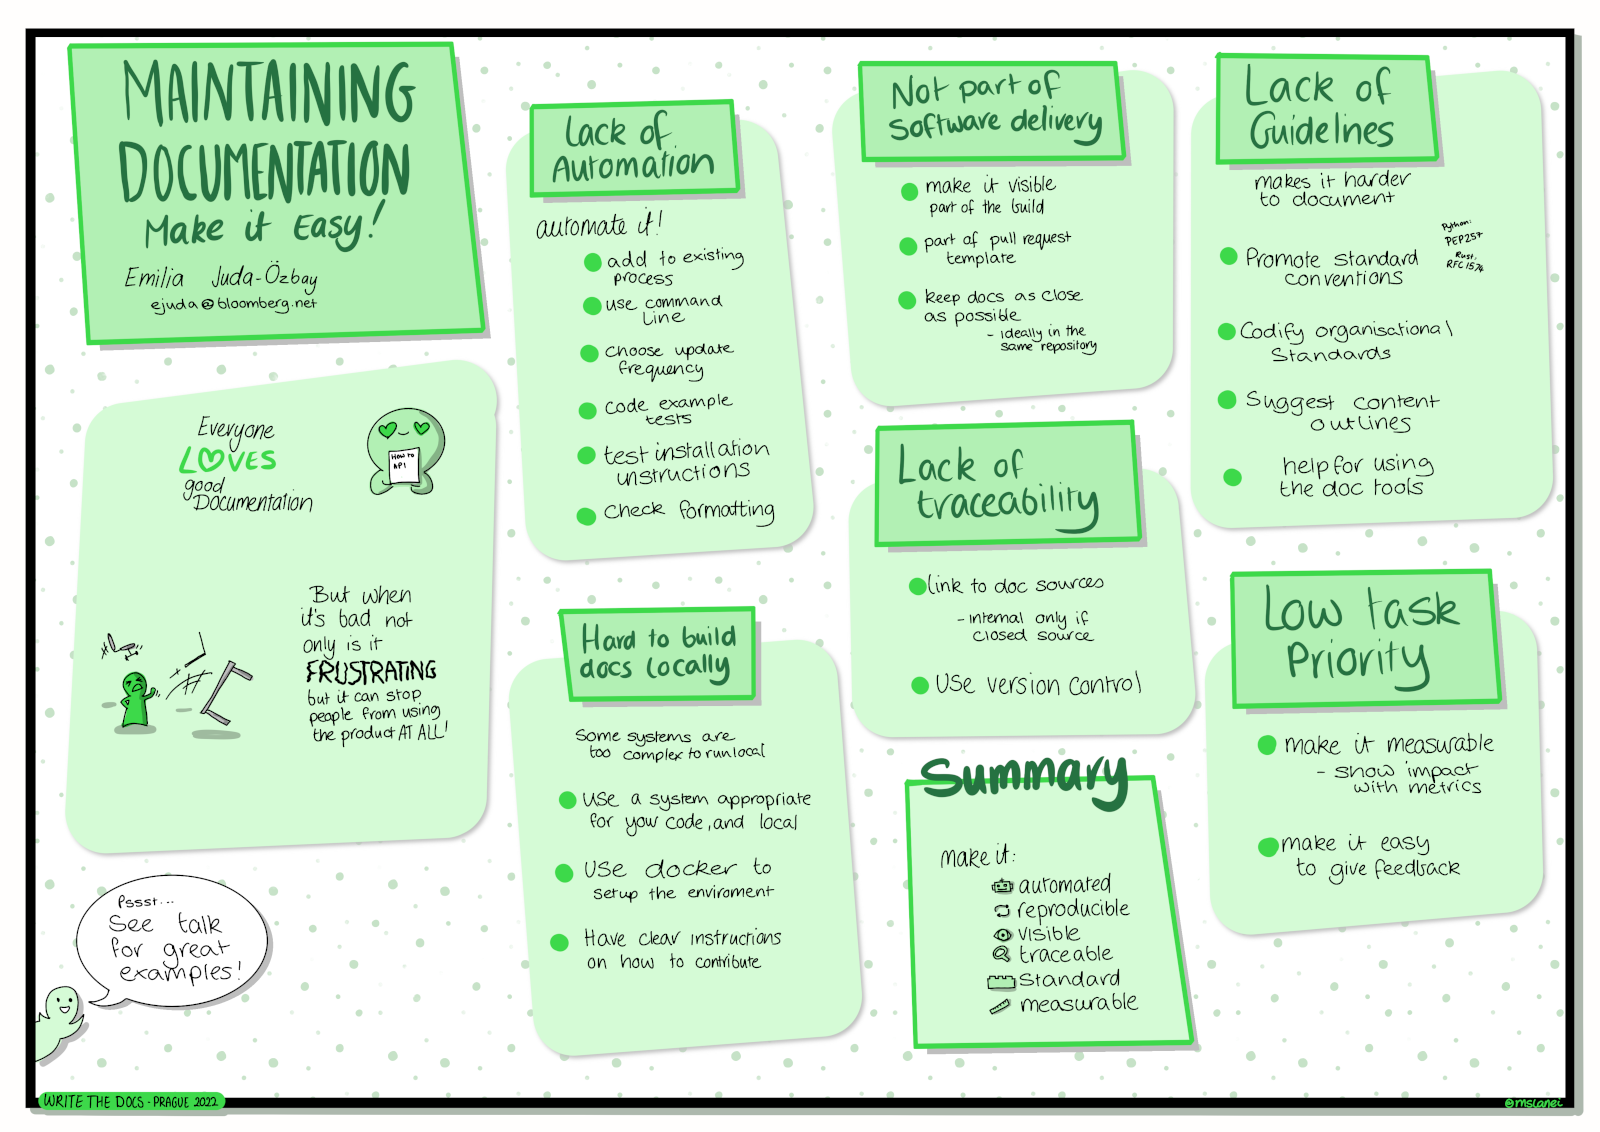 MAINTAINING
DOCUMENTATION
Make it Easy!
Emilia Juda-Özbay
ejuda@bloomberg.net
Everyone
LOVES
good
Documentation
How to
API
But when
it's bad not
only is it
FRUSTRATING
but it can stop
people from using
the product AT ALL!
Pssst...
See talk
for great
examples!
WRITE THE DOCS - PRAGUE 2022
Lack of
Automation
automate it!
add to existing
process
use command
Line
choose update
frequency
code example
tests
test installation
instructions
check formatting
Hard to build
docs locally
Some systems are
too complex to run local
Use a system appropriate
for your code, and local
Use docker to
setup the enviroment
Have clear instructions
on how to contribute
Not part of
Software delivery
make it visible
part of the build
part of pull request
template
keep docs as close
as possible
- ideally in the
same repository
Lack of
traceability
link to doc sources
- internal only if
closed source
Use version control
Summary
make it:
automated
reproducible
visible
traceable
Standard
measurable
Lack of
Guidelines
makes it harder
to document
Python:
PEP257
Rust.
RFC1574
Promote standard
conventions
Codify organisational
Standards
Suggest content
outlines
help for using
the doc tools
Low task
Priority
make it measurable
- show impact
with metrics
make it easy
to give feedback
@mslanei